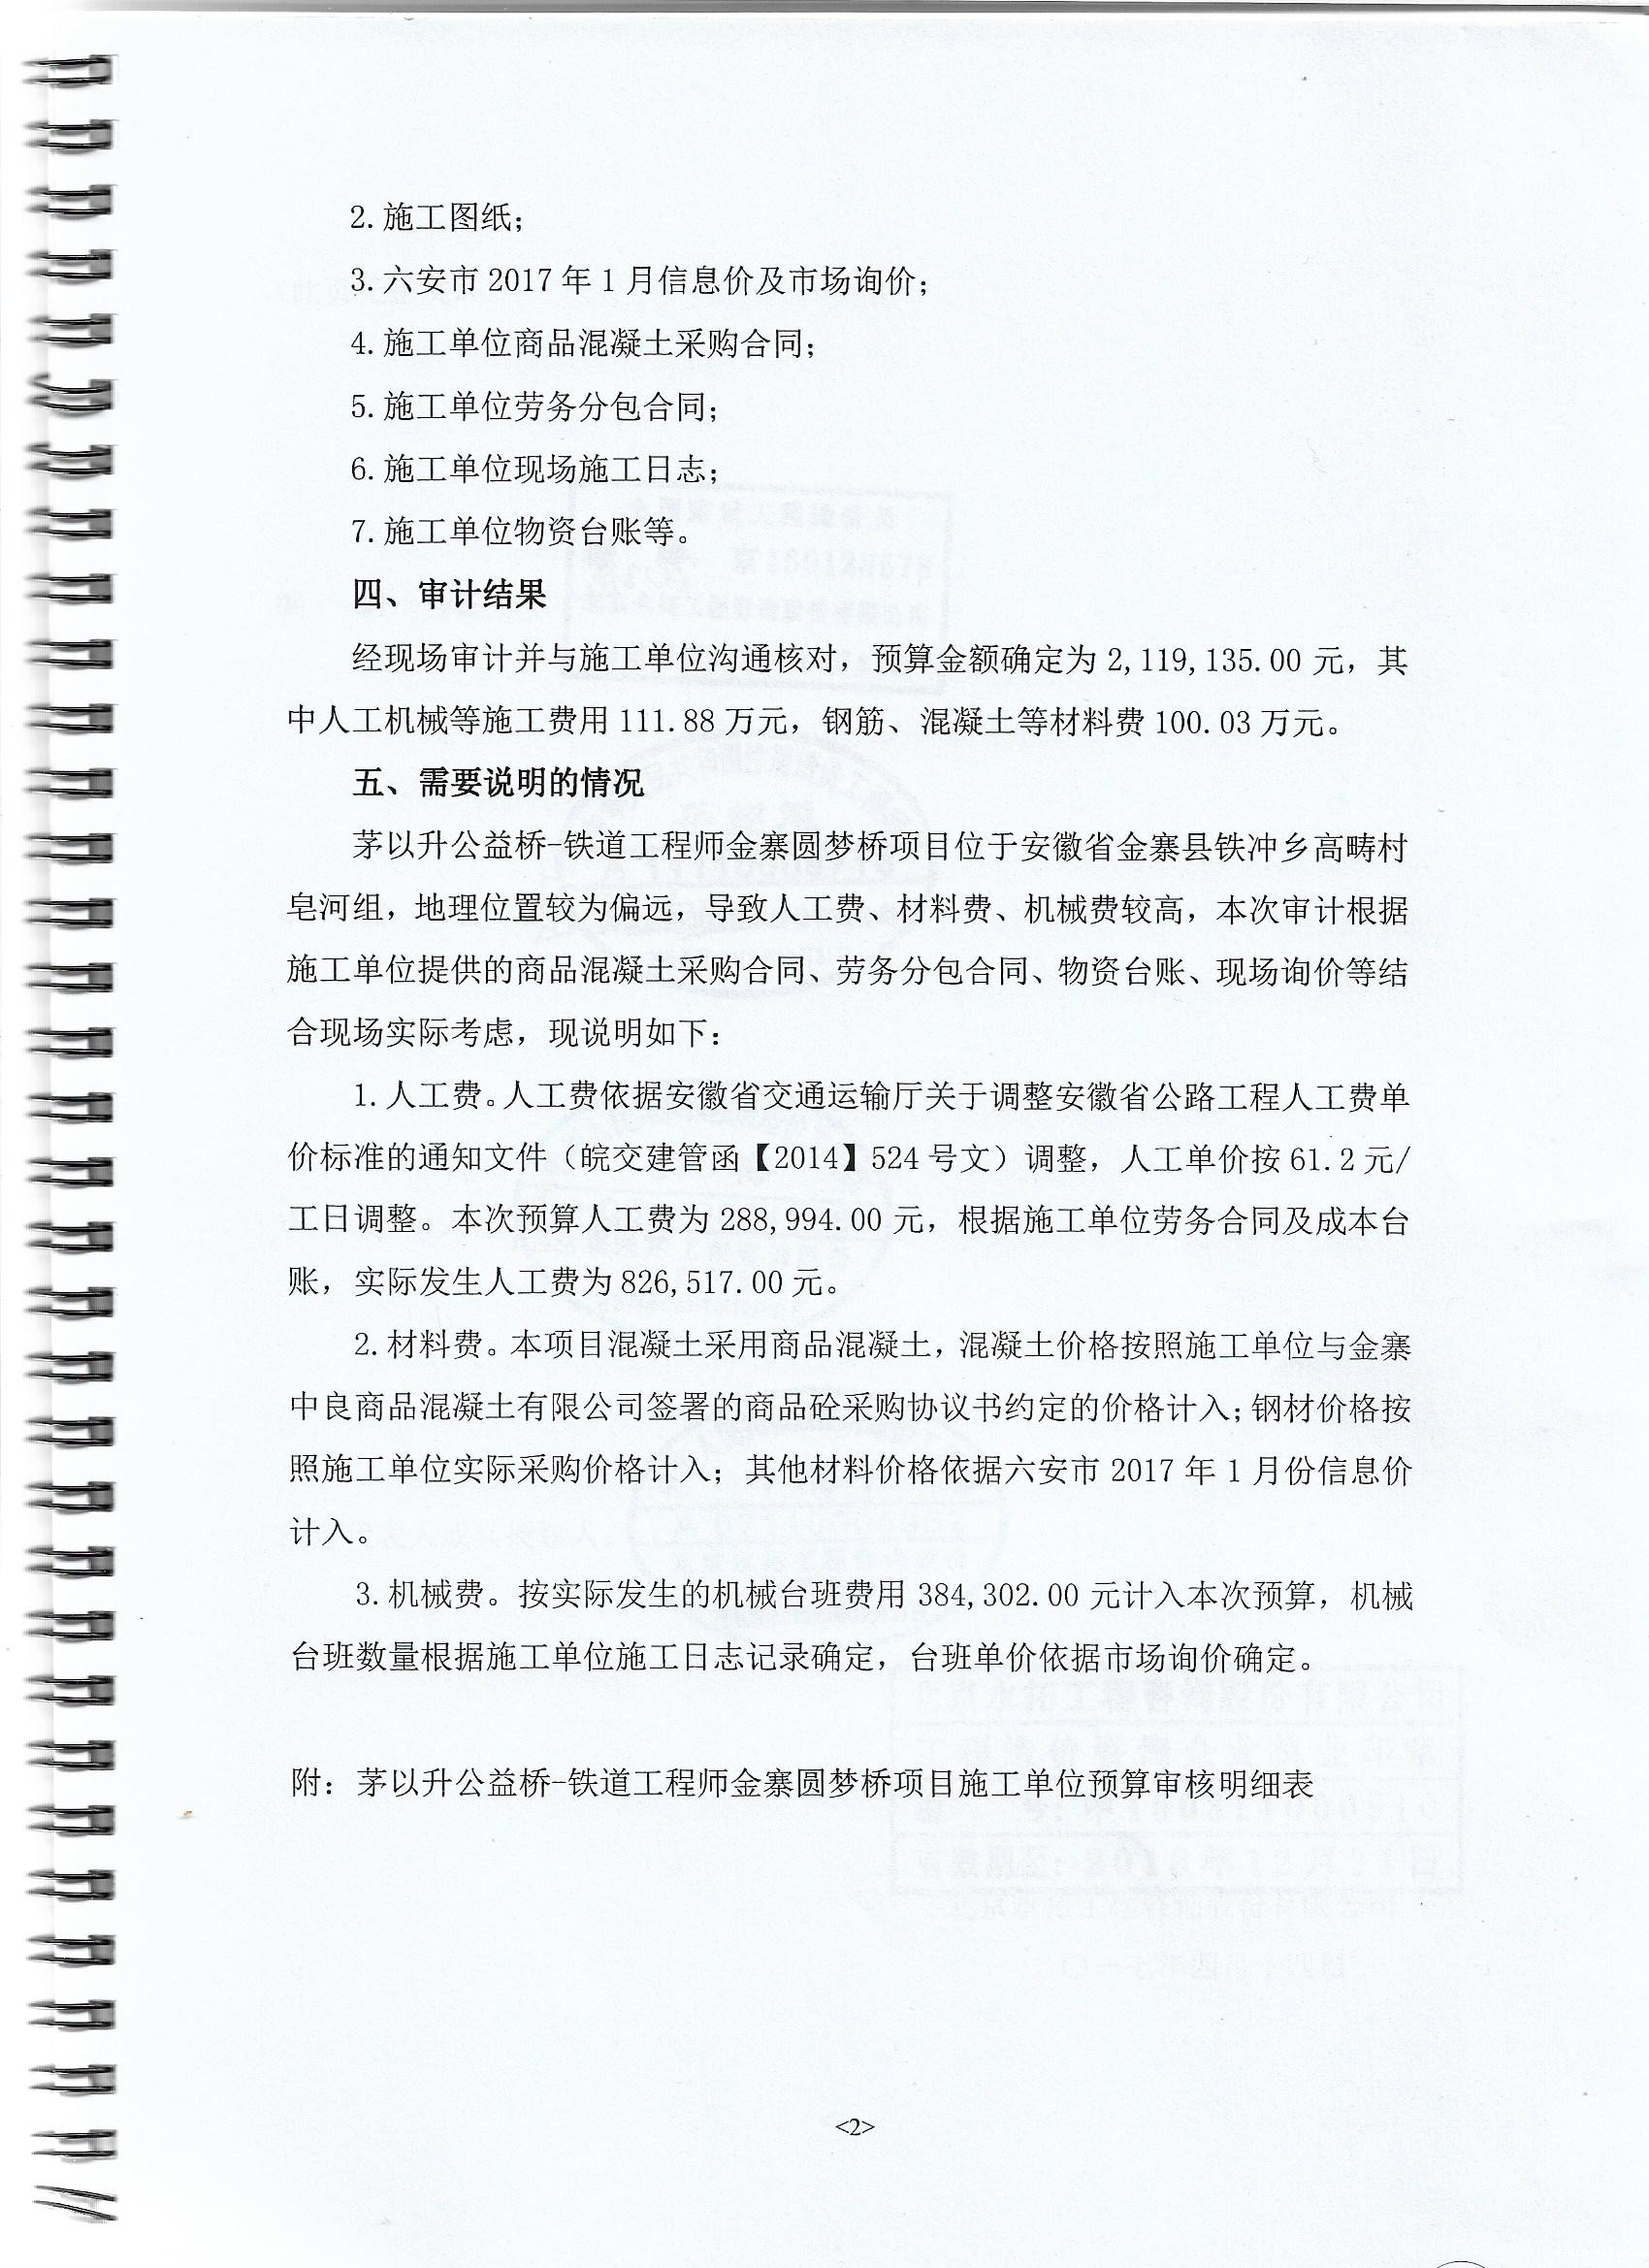 2. 施工图纸；
3. 六安市 2017 年 1 月信息价及市场询价；
4. 施工单位商品混凝土采购合同；
5. 施工单位劳务分包合同；
6. 施工单位现场施工日志；
7. 施工单位物资台账等。
四、审计结果
经现场审计并与施工单位沟通核对，预算金额确定为 2,119,135.00 元，其
中人工机械等施工费用 111.88 万元，钢筋、混凝土等材料费 100.03 万元。
五、需要说明的情况
茅以升公益桥-铁道工程师金寨圆梦桥项目位于安徽省金寨县铁冲乡高畴村
皂河组，地理位置较为偏远，导致人工费、材料费、机械费较高，本次审计根据
施工单位提供的商品混凝土采购合同、劳务分包合同、物资台账、现场询价等结
合现场实际考虑，现说明如下：
1. 人工费。人工费依据安徽省交通运输厅关于调整安徽省公路工程人工费单
价标准的通知文件（皖交建管函【2014】524 号文）调整，人工单价按 61.2 元/
工日调整。本次预算人工费为 288,994.00 元，根据施工单位劳务合同及成本台
账，实际发生人工费为 826,517.00 元。
2. 材料费。本项目混凝土采用商品混凝土，混凝土价格按照施工单位与金寨
中良商品混凝土有限公司签署的商品砼采购协议书约定的价格计入；钢材价格按
照施工单位实际采购价格计入；其他材料价格依据六安市 2017 年 1 月份信息价
计入。
3. 机械费。按实际发生的机械台班费用 384,302.00 元计入本次预算，机械
台班数量根据施工单位施工日志记录确定，台班单价依据市场询价确定。
附：茅以升公益桥-铁道工程师金寨圆梦桥项目施工单位预算审核明细表
<2>